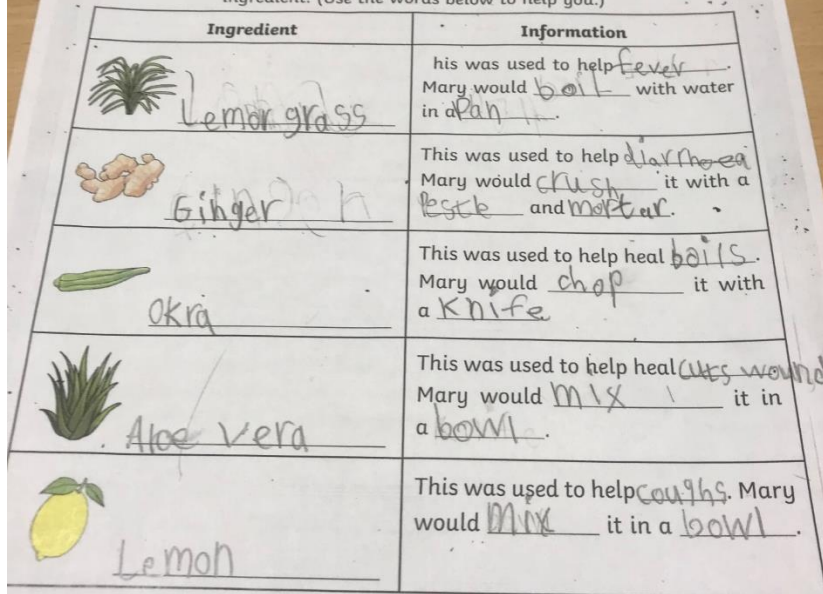 Ingredient. (Use the words below to help you.)
Ingredient
Information
Lemon grass
his was used to help fever.
Mary would boil with water
in a Pan.
Ginger
This was used to help diarrhoea
Mary would crush it with a
Pestle and mortar.
Okra
This was used to help heal boils.
Mary would chop it with
a Knife
Aloe vera
This was used to help heal cuts wound
Mary would mix it in
a bowl.
Lemon
This was used to help coughs. Mary
would mix it in a bowl.